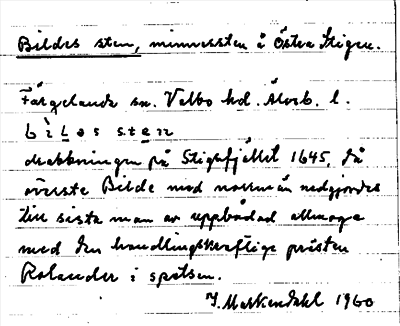 Bildes sten, minnessten å Östra Stigen.
Färgelanda sn. Valbo hd. Älvsb. l.
b ì L ə s s t e n
drabbningen på Stigsfjället 1645, då
överste Bilde med norrmän nedgjordes
till sista man av uppbådad allmoge
med den handlingskraftige prästen
Rolander i spetsen.
J. Markendahl 1960